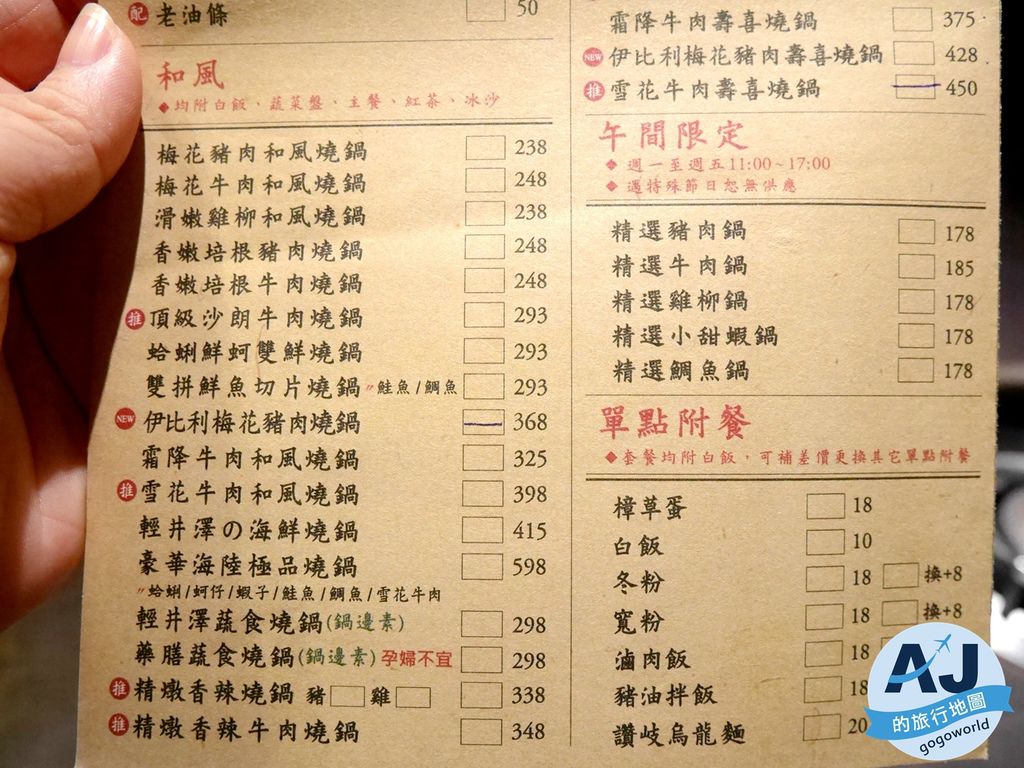 配 老油條 50
和風
◆均附白飯、蔬菜盤、主餐、紅茶、冰沙
梅花豬肉和風燒鍋 238
梅花牛肉和風燒鍋 248
滑嫩雞柳和風燒鍋 238
香嫩培根豬肉燒鍋 248
香嫩培根牛肉燒鍋 248
推 頂級沙朗牛肉燒鍋 293
蛤蜊鮮蚵雙鮮燒鍋 293
雙拼鮮魚切片燒鍋 〃鮭魚/鯛魚 293
NEW 伊比利梅花豬肉燒鍋 368
霜降牛肉和風燒鍋 325
推 雪花牛肉和風燒鍋 398
輕井澤の海鮮燒鍋 415
豪華海陸極品燒鍋 598
〃蛤蜊/蚵仔/蝦子/鮭魚/鯛魚/雪花牛肉
輕井澤蔬食燒鍋(鍋邊素) 298
藥膳蔬食燒鍋(鍋邊素)孕婦不宜 298
推 精燉香辣燒鍋 豬 雞 338
推 精燉香辣牛肉燒鍋 348
霜降牛肉壽喜燒鍋 375
NEW 伊比利梅花豬肉壽喜燒鍋 428
推 雪花牛肉壽喜燒鍋 450
午間限定
◆ 週一至週五11:00~17:00
◆ 遇特殊節日恕無供應
精選豬肉鍋 178
精選牛肉鍋 185
精選雞柳鍋 178
精選小甜蝦鍋 178
精選鯛魚鍋 178
單點附餐
◆套餐均附白飯，可補差價更換其它單點附餐
樟草蛋 18
白飯 10
冬粉 18 換+8
寬粉 18 換+8
滷肉飯 18
豬油拌飯 18
讚岐烏龍麵 20
AJ
的旅行地圖
gogoworld